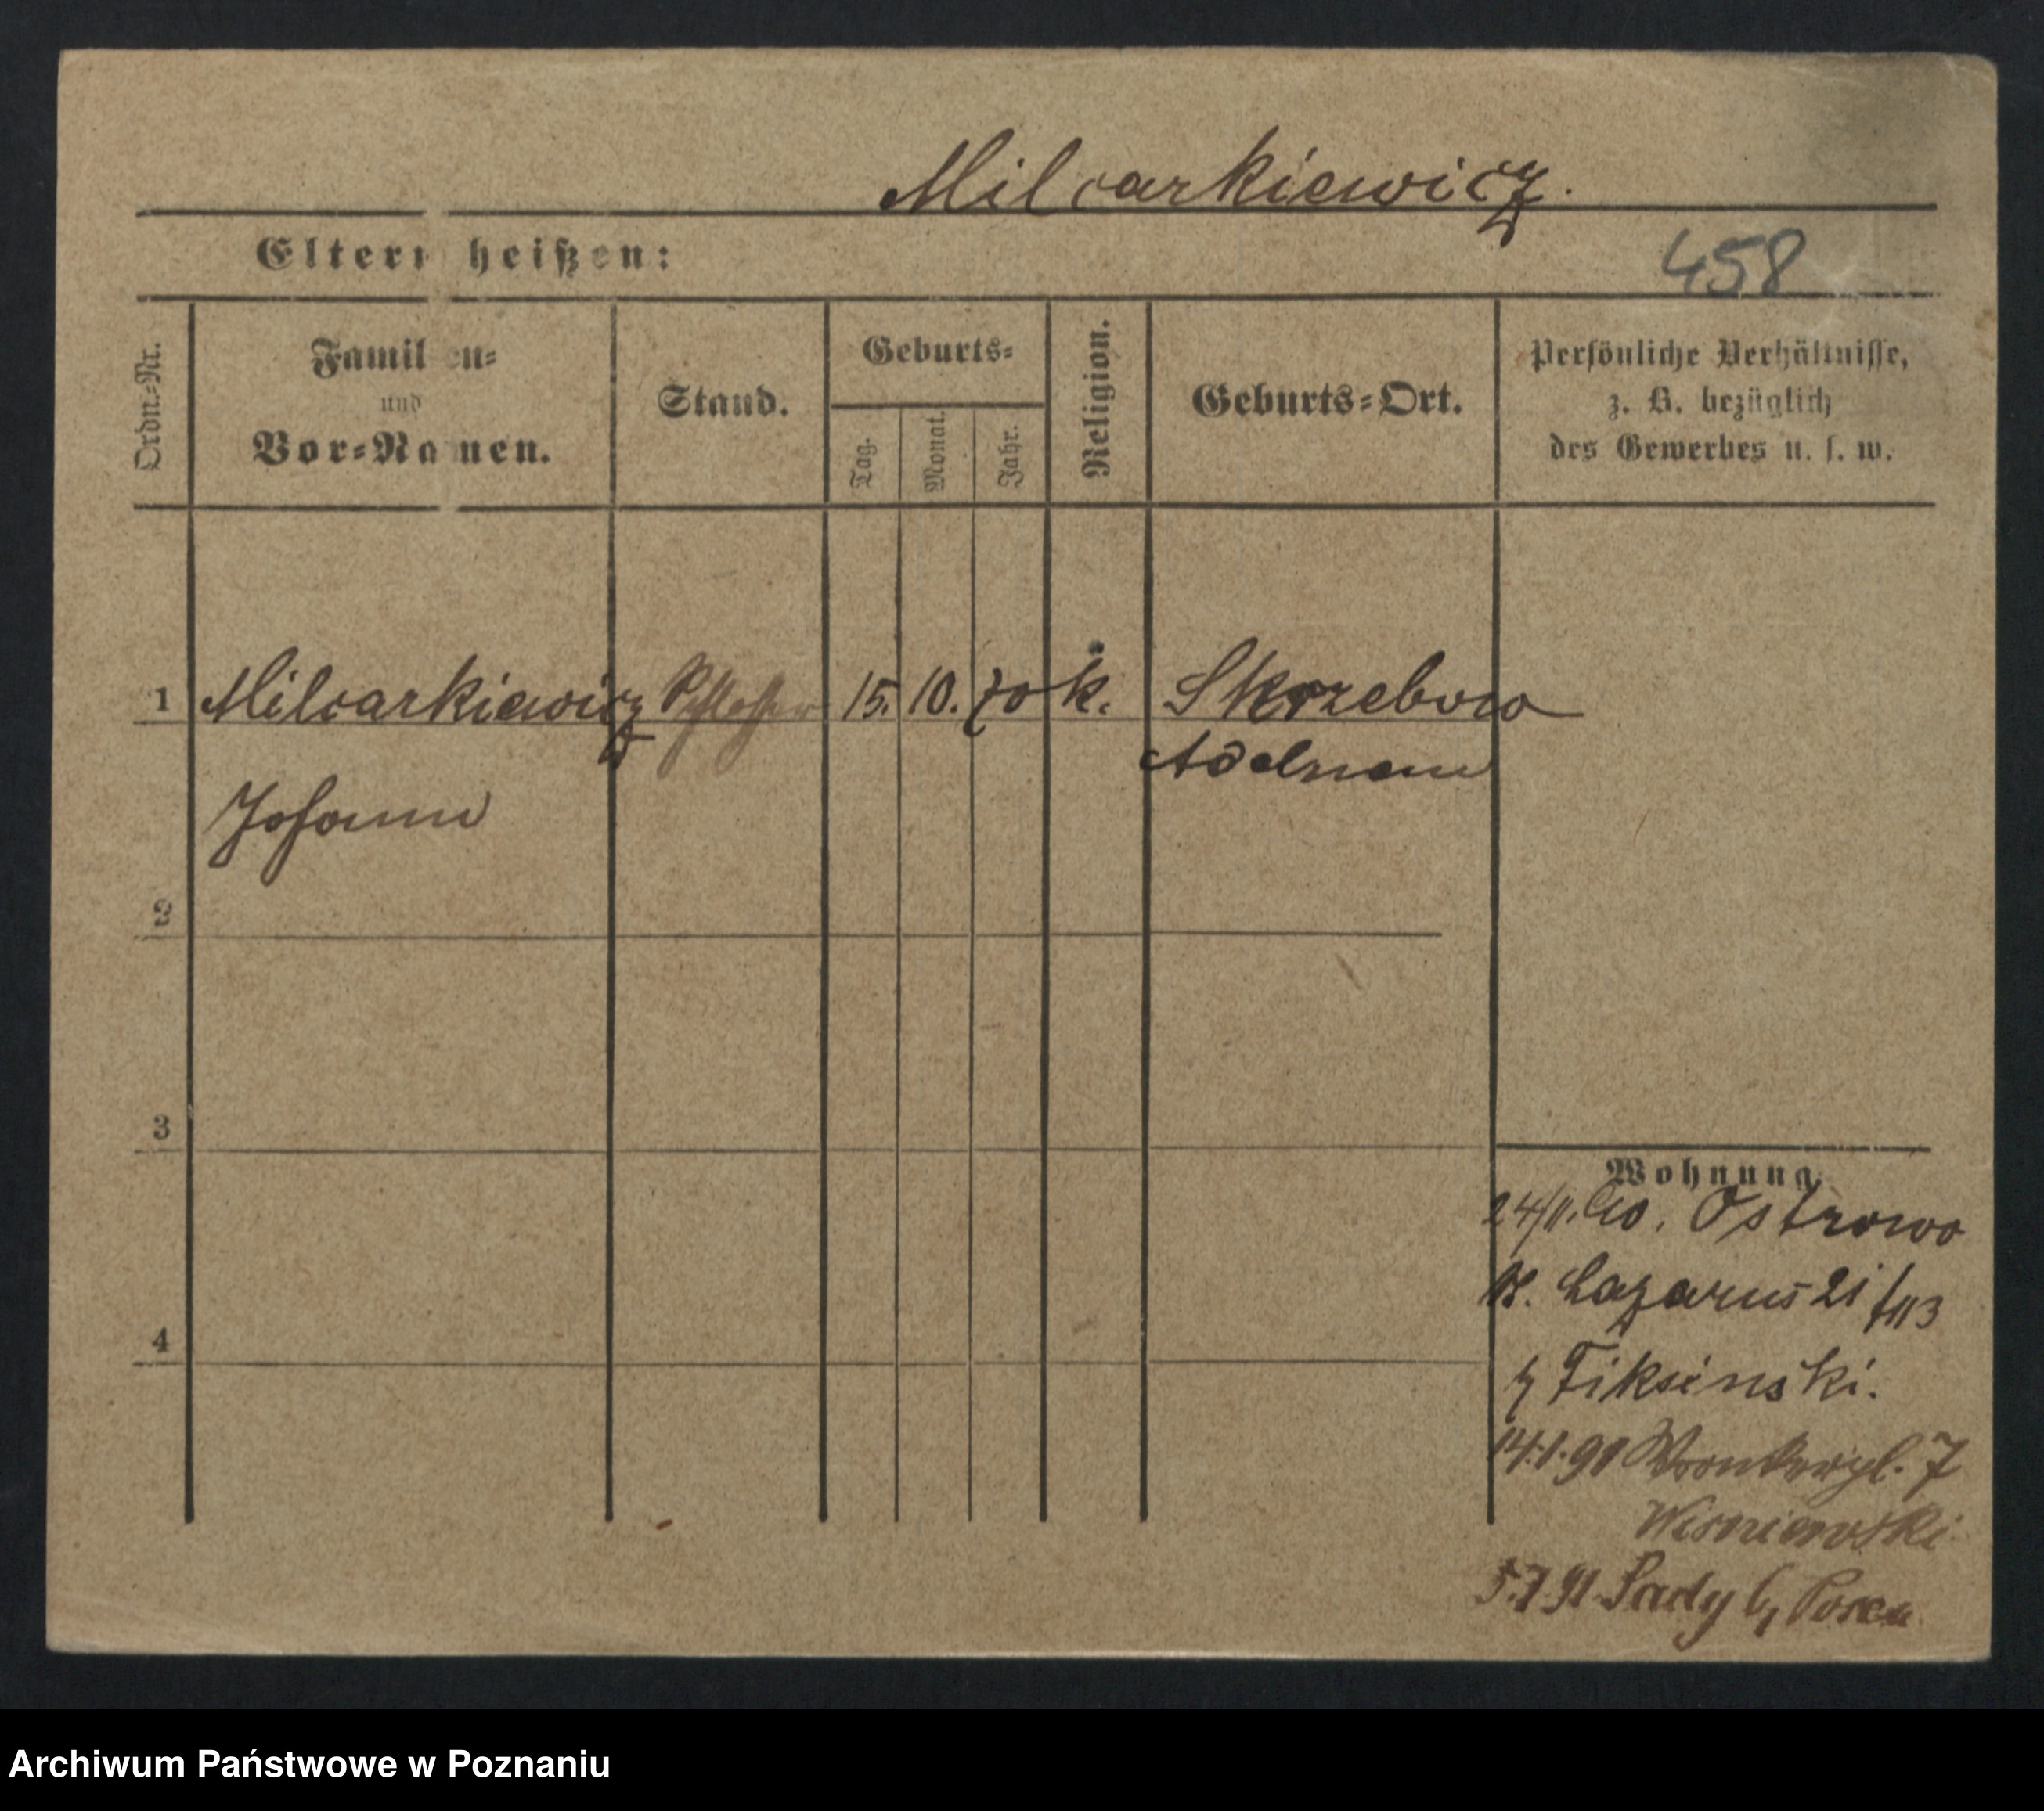 Milcarkiewicz.
Eltern heißen:
458
Ordn.-Nr.
Familien-
und
Vor-Namen.
Stand.
Geburts-
Tag.
Monat.
Jahr.
Religion.
Geburts-Ort.
Persönliche Verhältnisse,
z. B. bezüglich
des Gewerbes u. s. w.
1 Milcarkiewicz Schlosser 15. 10. 70 k. Skrzebowo
Adelnau
Johann
2
3
Wohnung.
24/11. 90. Ostrowo
St. Lazarus 21
4
Fiksinski.
14.1.91 Wronkerpl. 7
Wisniewski
5.7 91 Sady b/ Posen
Archiwum Państwowe w Poznaniu